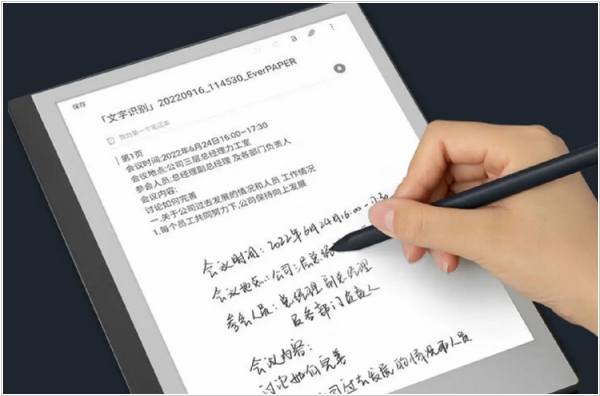 保存
「文字识别」20220916_114530_EverPAPER
我的第一个笔记本
第1页
会议时间:2022年6月24日16:00-17:30
会议地点:公司三层总经理力工室
参会人员:总经理副总经理 及各部门负责人
会议内容:
讨论如何完善
一.关于公司过去发展的情况和人员 工作情况
1.每个员工共同努力下,公司保持向上发展
会议时间:2022年6月24日16:00-17:30
会议地点:公司三层总经
参会人员:总经理副总经理
及各部门负责人
会议内容:
讨论如何完善
公司过去发展的情况和人员